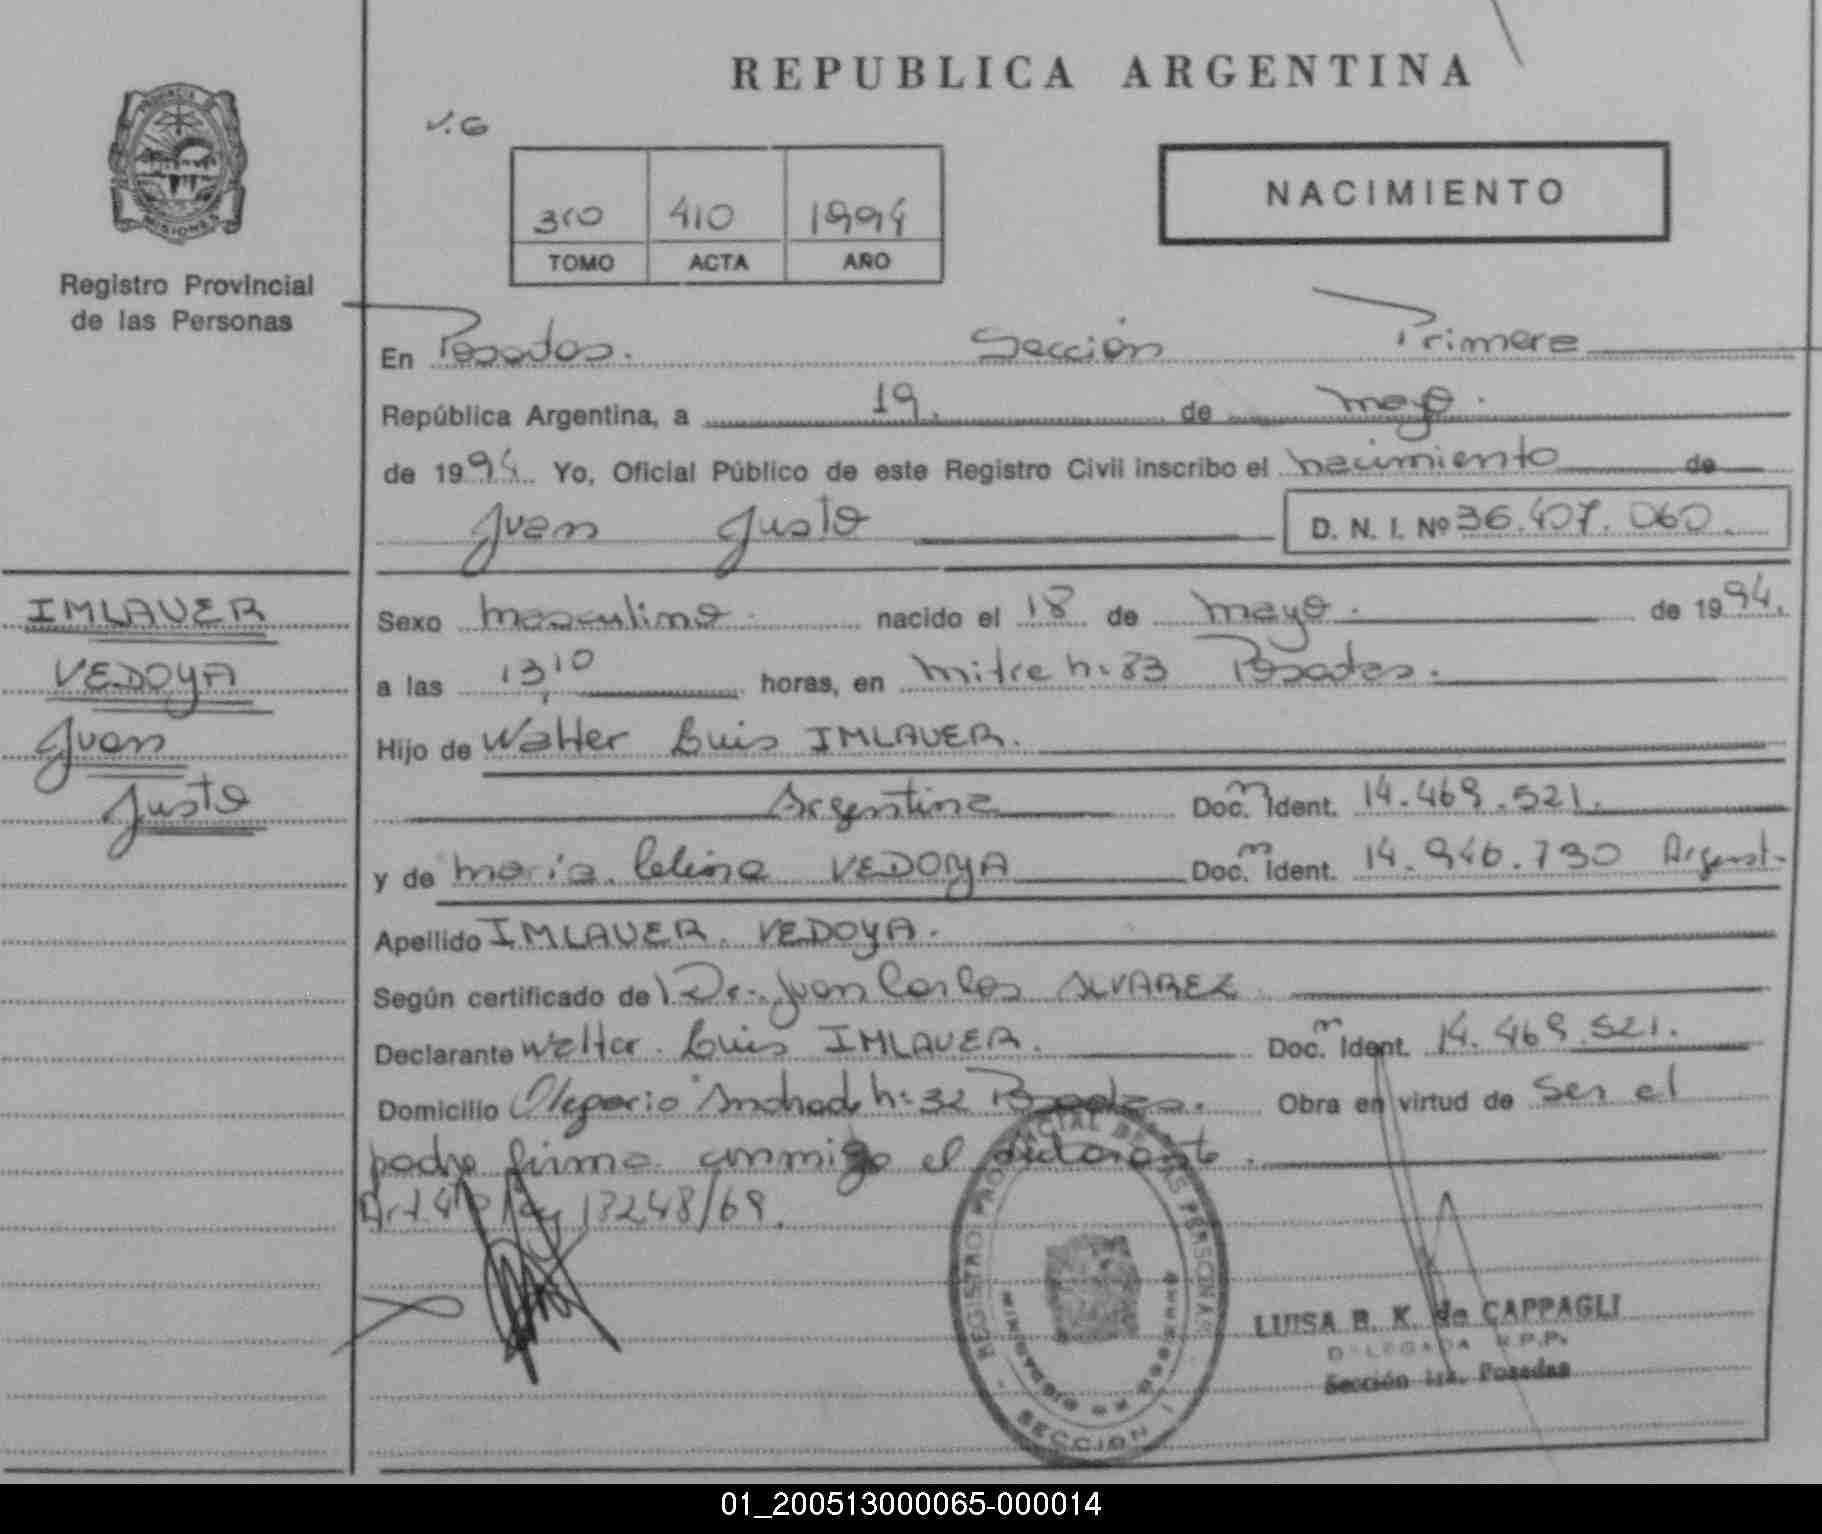 REPUBLICA ARGENTINA
V.G
310 410 1994
TOMO ACTA AÑO
NACIMIENTO
PROVINCIA DE MISIONES
Registro Provincial
de las Personas
En Posadas. Sección Primera
República Argentina, a 19. de mayo.
de 1994. Yo, Oficial Público de este Registro Civil inscribo el nacimiento de
Juan Justo D. N. I. Nº 36.407.060.
IMLAUER
VEDOYA
Juan
Justo
Sexo masculino. nacido el 18 de mayo. de 1994.
a las 13,10 horas, en mitre n: 83 Posadas.
Hijo de Walter Luis IMLAUER.
Argentina Doc. m Ident. 14.469.521.
y de maría Celina VEDOYA Doc. m Ident. 14.946.790 Argent.
Apellido IMLAUER VEDOYA.
Según certificado de Dr. Juan Carlos ALVAREZ
Declarante Walter Luis IMLAUER. Doc. m Ident. 14.469.521.
Domicilio Olegario Andrade n: 32 Posadas. Obra en virtud de ser el
padre firma conmigo el declarante.
Art. 4º Ley 18248/69.
REGISTRO PROVINCIAL DE LAS PERSONAS
MISIONES
SECCION
LUISA B. K. de CAPPAGLI
DELEGADA R.P.P.
Sección 1ra. Posadas
01_200513000065-000014